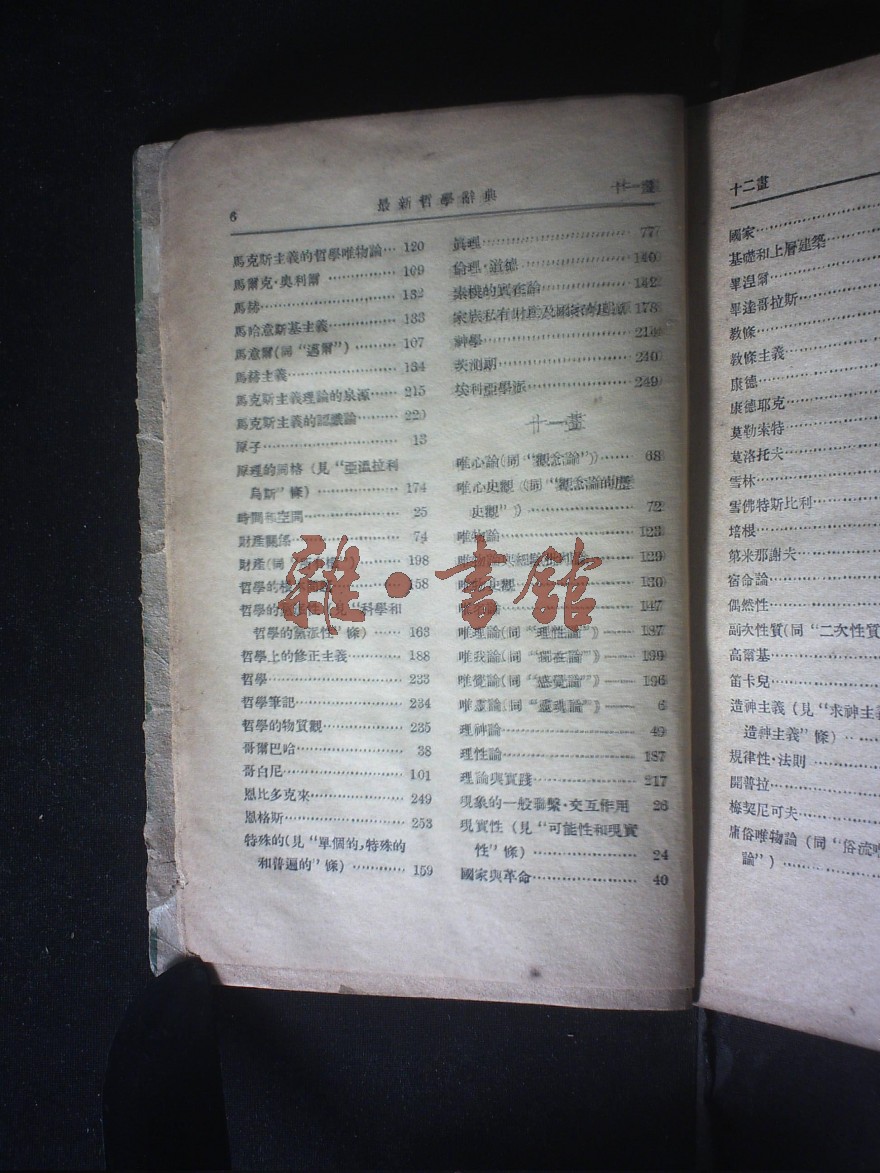 6
最新哲學辭典
十一畫
馬克斯主義的哲學唯物論… 120
馬爾克·奧利爾 ……………… 109
馬赫…………………………… 132
馬哈意斯基主義……………… 133
馬意爾(同“邁爾”)………… 107
馬赫主義……………………… 134
馬克斯主義理論的泉源…… 215
馬克斯主義的認識論……… 220
原子…………………………… 13
原理的同格(見“亞溫拉利
烏斯”條)…………………… 174
時間和空間…………………… 25
財產關係……………………… 74
財產(同 …… 198
哲學的 …… 158
哲學的黨派性(見“科學和
哲學的黨派性”條)…… 163
哲學上的修正主義………… 188
哲學…………………………… 233
哲學筆記……………………… 234
哲學的物質觀……………… 235
哥爾巴哈……………………… 38
哥白尼………………………… 101
恩比多克來…………………… 249
恩格斯………………………… 253
特殊的(見“單個的,特殊的
和普遍的”條)………… 159
眞理…………………………… 77
倫理·道德…………………… 140
素樸的實在論……………… 142
家族私有財產及國家的起源 178
神學…………………………… 214
茨測期………………………… 240
埃利亞學派…………………… 249
十一畫
唯心論(同“觀念論”)…… 68
唯心史觀(同“觀念論的歷
史觀”)……………………… 72
唯物論………………………… 123
唯物論與經驗批判論……… 129
唯物史觀……………………… 130
唯 …… 147
唯理論(同“理性論”)…… 187
唯我論(同“獨在論”)…… 199
唯覺論(同“感覺論”)…… 196
唯靈論(同“靈魂論”)…… 6
理神論………………………… 49
理性論………………………… 187
理論與實踐…………………… 217
現象的一般聯繫·交互作用 26
現實性(見“可能性和現實
性”條)……………………… 24
國家與革命…………………… 40
十二畫
國家……………
基礎和上層建築……
畢涅爾…………
畢達哥拉斯……
敎條……………
敎條主義………
康德……………
康德耶克………
莫勒索特………
莫洛托夫………
雪林……………
雪佛特斯比利…
培根……………
第米那謝夫……
宿命論…………
偶然性…………
副次性質(同“二次性質
高爾基…………
笛卡兒…………
造神主義(見“求神主義
造神主義”條)……
規律性·法則……
開普拉…………
梅契尼可夫……
庸俗唯物論(同“俗流唯
論”)……………
雜·書館